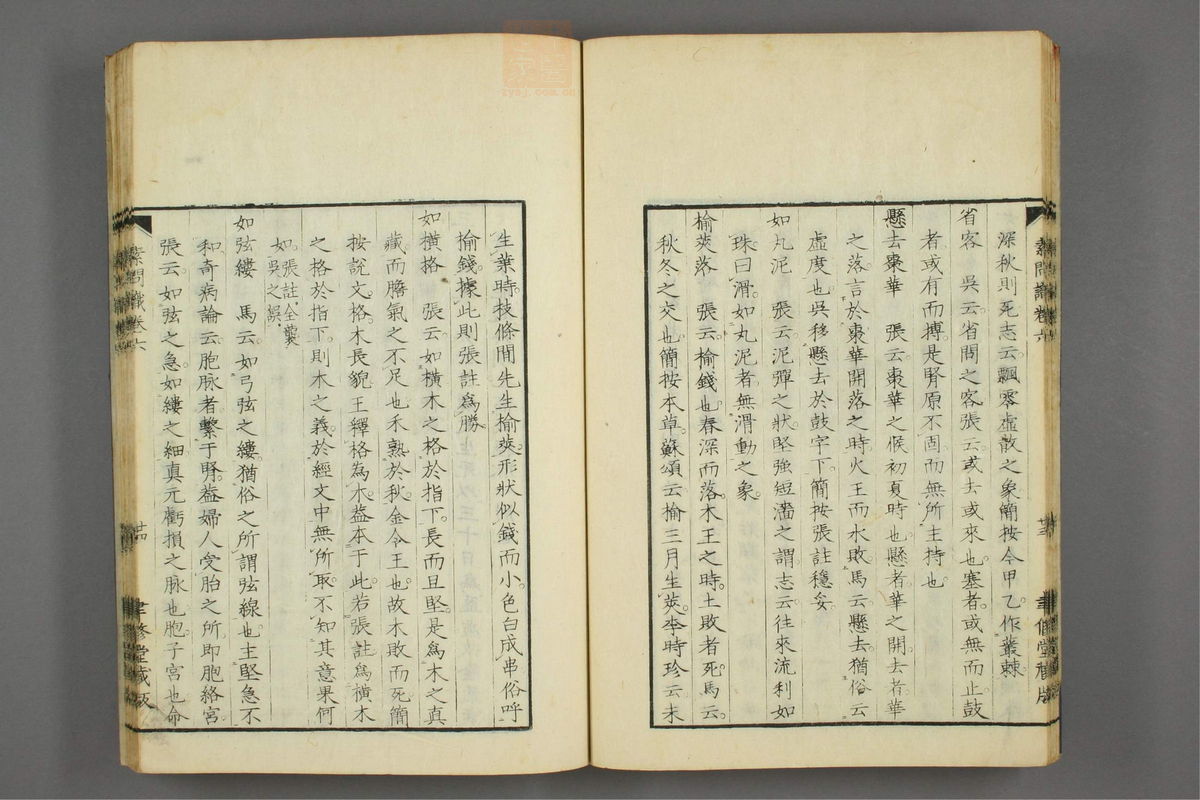 深秋則死志云飄零虛散之象簡按今甲乙作叢棘
省客　吳云省問之客張云或去或來也塞者或無而止鼓
者或有而搏是腎原不固而無所主持也
懸去棗華　張云棗華之候初夏時也懸者華之開去者華
之落言於棗華開落之時火王而水敗馬云懸去猶俗云
虛度也吳移懸去於鼓字下簡按張註穩妥
如丸泥　張云泥彈之狀堅強短濇之謂志云往來流利如
珠曰滑如丸泥者無滑動之象
榆莢落　張云榆錢也春深而落木王之時土敗者死馬云
秋冬之交也簡按本草蘇頌云榆三月生莢李時珍云未
素問識卷六
廿三
聿修堂藏版
生葉時枝條間先生榆莢形狀似錢而小色白成串俗呼
榆錢據此則張註為勝
如橫格　張云如橫木之格於指下長而且堅是為木之真
藏而膽氣之不足也禾熟於秋金令王也故木敗而死簡
按說文格木長貌王釋格為木蓋本于此若張註為橫木
之格於指下則木之義於經文中無所取不知其意果何
如張註全襲
吳之誤
如弦縷　馬云如弓弦之縷猶俗之所謂弦線也主堅急不
和奇病論云胞脉者繫于腎蓋婦人受胎之所即胞絡宮
張云如弦之急如縷之細真元虧損之脉也胞子宮也命
素問識卷六
廿四
聿修堂藏版
zysj.com.cn